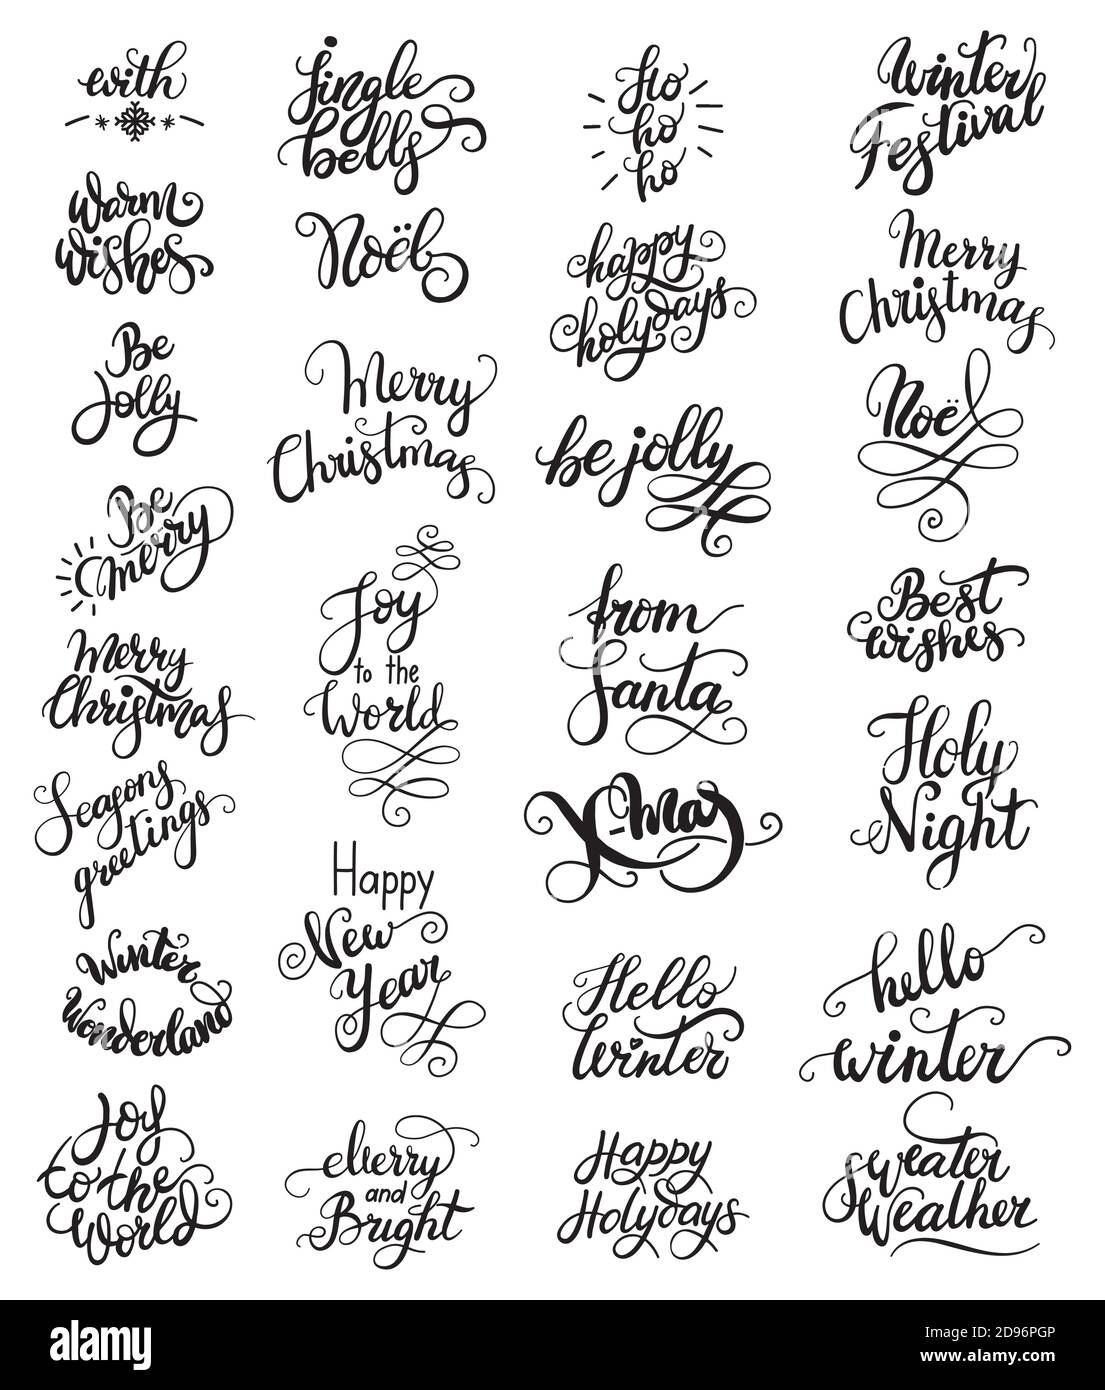 with
Warm
wishes
Be
Jolly
Be
merry
Merry
Christmas
Seasons
greetings
Winter
Wonderland
Joy
to the
World
Jingle
bells
Noël
Merry
Christmas
Joy
to the
World
Happy
New
Year
Merry
and
Bright
Ho
ho
ho
happy
holydays
be jolly
from
Santa
X-mas
Hello
Winter
Happy
Holydays
Winter
Festival
Merry
Christmas
Noël
Best
wishes
Holy
Night
hello
winter
Sweater
Weather
alamy
alamy
Image ID: 2D96PGP
www.alamy.com